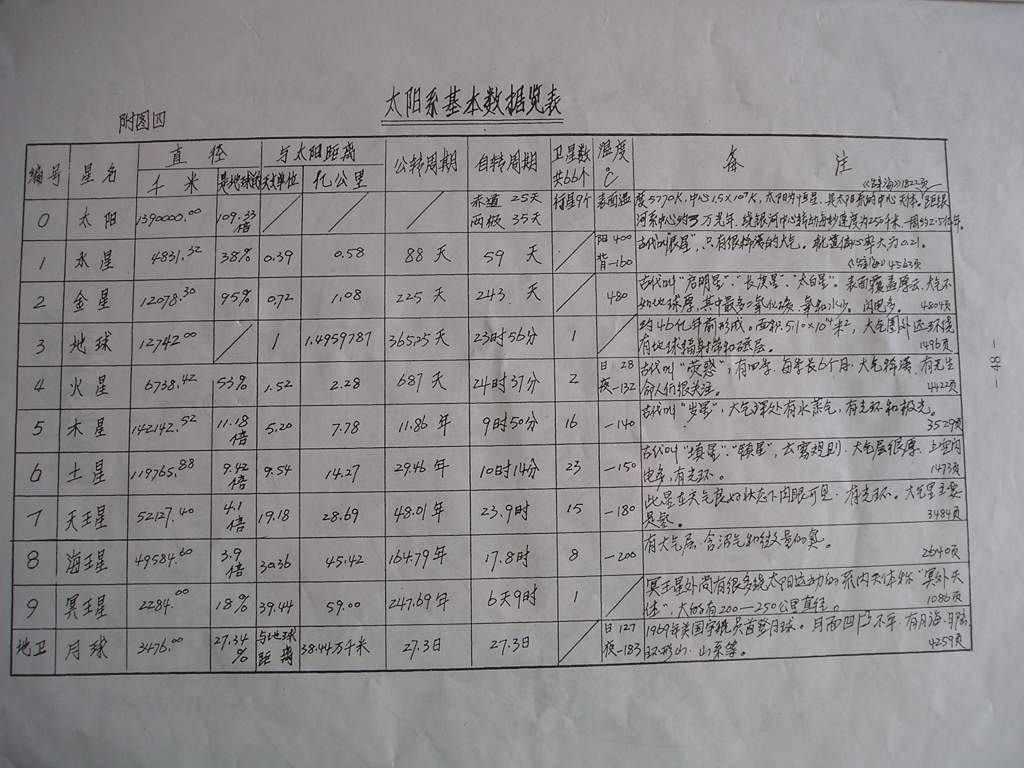 太阳系基本数据览表
附图四
编号 星名 直径 与太阳距离 公转周期 自转周期 卫星数 温度 备注
千米 是地球的 天文单位 亿公里 共66个 ℃ 《辞海》1822页
0 太阳 1390000.00 109.33倍 / / / / 赤道 25天 行星9个 表面温度5770K,中心1.5×10⁷K,太阳为恒星,是太阳系的中心天体。距银
两极 35天 河系中心约3万光年,绕银河中心转动每秒速度为250千米,一周约2.5亿年。
1 水星 4831.32 38% 0.39 0.58 88天 59天 / 阳400 古代叫"辰星",只有很稀薄的大气。轨道偏心率大为0.21。
背-160 《辞海》4563页
2 金星 12078.30 95% 0.72 1.08 225天 243天 / 480 古代叫"启明星"、"长庚星"、"太白星"。表面覆盖厚云、大气
地球厚,其中最多二氧化碳 4804页
3 地球 12742.00 / 1 1.4959787 365.25天 23时56分 1 / 约46亿年前形成。面积5.10×10¹⁴米²,大气圈外还环绕
有地球辐射带和磁层。 1496页
4 火星 6738.42 53% 1.52 2.28 687天 24时37分 2 日28 古代叫"荧惑",有四季,每季长6个月,大气稀薄,有无生
夜-132 命人们很关注。 4422页
5 木星 142142.52 11.18倍 5.20 7.78 11.86年 9时50分 16 -140 古代叫"岁星",大气深处有水蒸气,有光环和极光。
3529页
6 土星 119765.88 9.42倍 9.54 14.27 29.46年 10时14分 23 -150 古代叫"填星"、"镇星",云雾规则、大气层很厚、上空闪
电多,有光环。 1473页
7 天王星 52127.40 4.1倍 19.18 28.69 48.01年 23.9时 15 -180 此星在天气良好状态下肉眼可见,有光环。大气主要
是氢。 3484页
8 海王星 49584.60 3.9倍 30.36 45.42 164.79年 17.8时 8 -200 有大气层,含沼气和微量的氨。
2640页
9 冥王星 2284.00 18% 39.44 59.00 247.69年 6天9时 1 / 冥王星外尚有很多绕太阳运动的系内天体称"冥外天
体",大的有200—250公里直径。 1086页
地卫 月球 3476.00 27.34% 与地球距离 38.44万千米 27.3日 27.3日 / 日127 1969年美国宇航员首登月球。月面凹凸不平,有月海、月陆
夜-183 环形山、山系等。 4259页
-48-